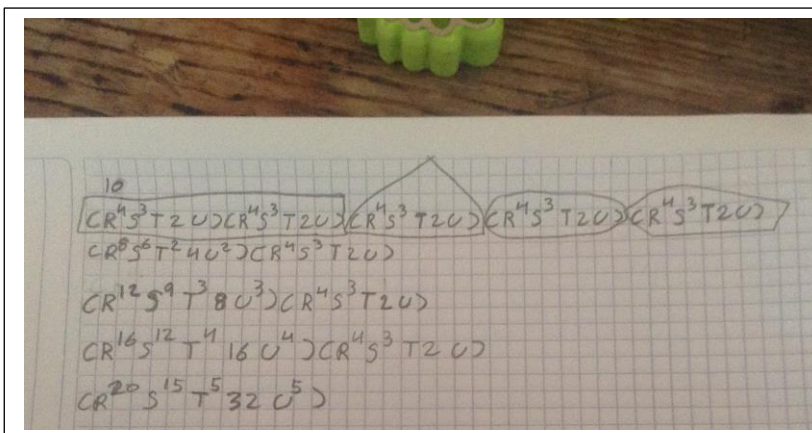 10
(R⁴S³T2U)(R⁴S³T2U)(R⁴S³T2U)(R⁴S³T2U)(R⁴S³T2U)
(R⁸S⁶T²4U²)(R⁴S³T2U)
(R¹²S⁹T³8U³)(R⁴S³T2U)
(R¹⁶S¹²T⁴16U⁴)(R⁴S³T2U)
(R²⁰S¹⁵T⁵32U⁵)